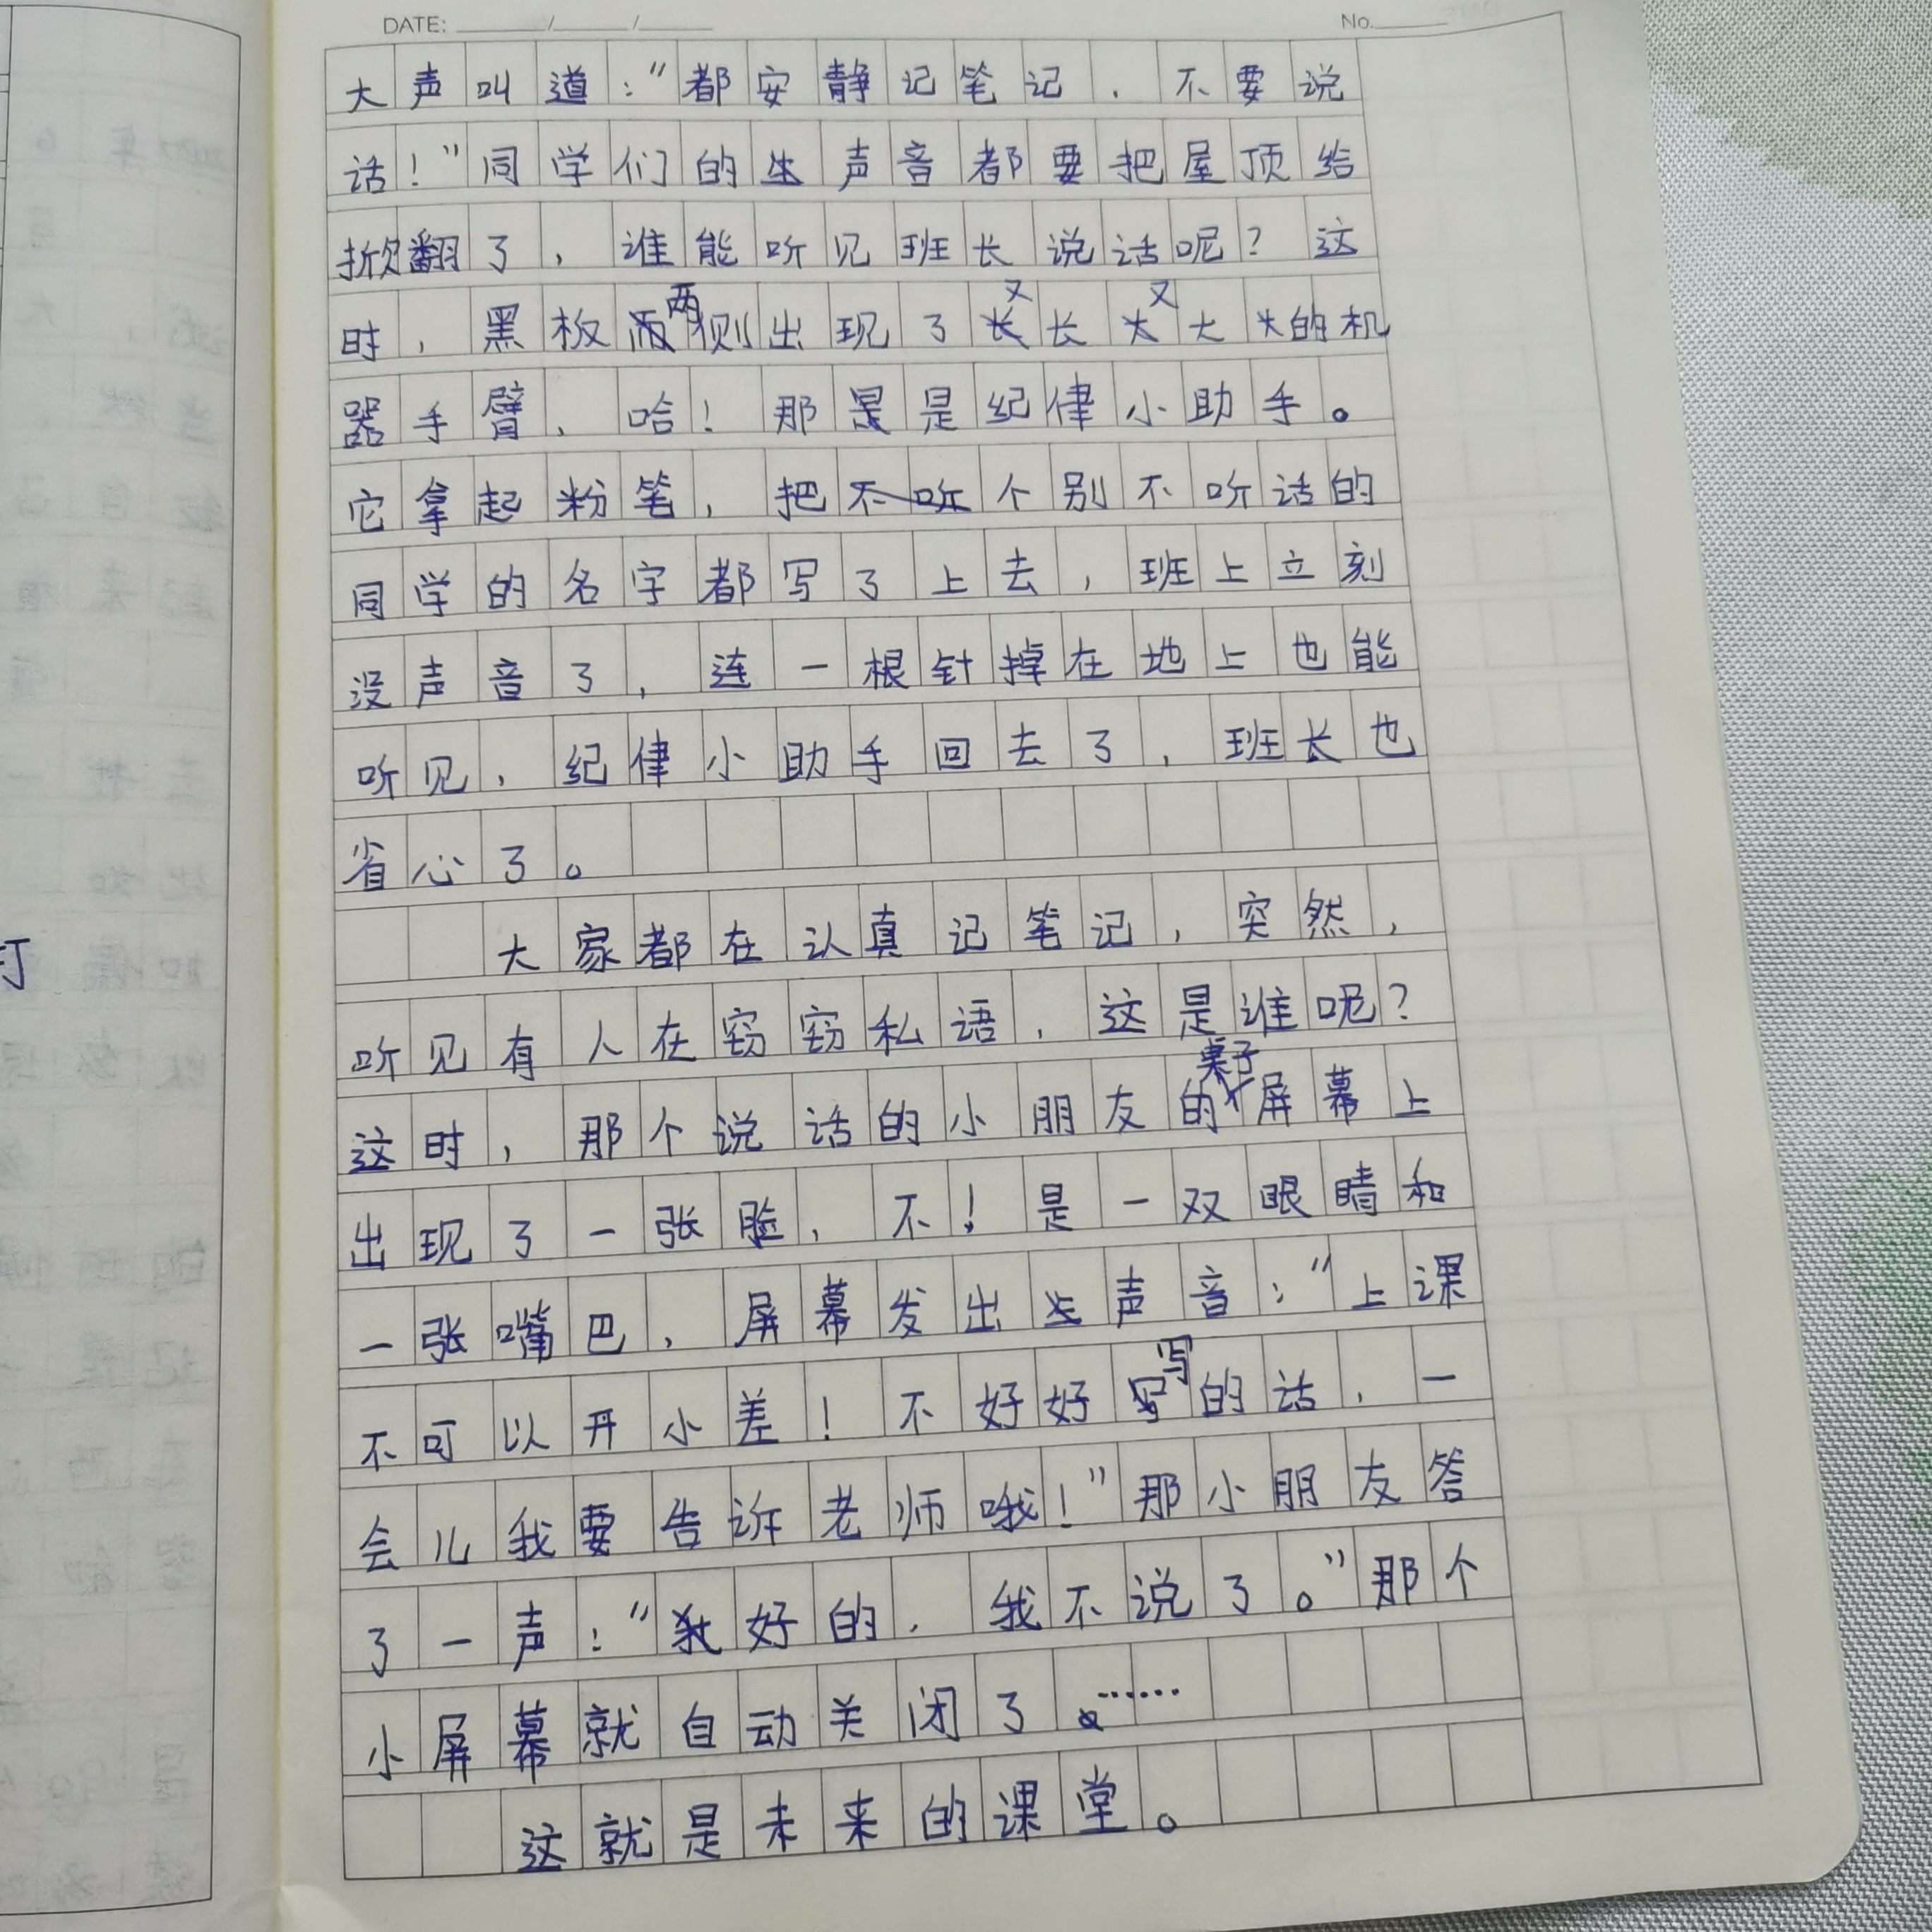 DATE: ____/____/____ No.____
大声叫道：“都安静记笔记，不要说
话！”同学们的声音都要把屋顶给
掀翻了，谁能听见班长说话呢？这
时，黑板两侧出现了又长又大的机
器手臂，哈！那是纪律小助手。
它拿起粉笔，把个别不听话的
同学的名字都写了上去，班上立刻
没声音了，连一根针掉在地上也能
听见，纪律小助手回去了，班长也
省心了。
大家都在认真记笔记，突然，
听见有人在窃窃私语，这是谁呢？
这时，那个说话的小朋友的桌子屏幕上
出现了一张脸，不！是一双眼睛和
一张嘴巴，屏幕发出声音：“上课
不可以开小差！不好好写的话，一
会儿我要告诉老师哦！”那小朋友答
了一声：“好的，我不说了。”那个
小屏幕就自动关闭了……
这就是未来的课堂。